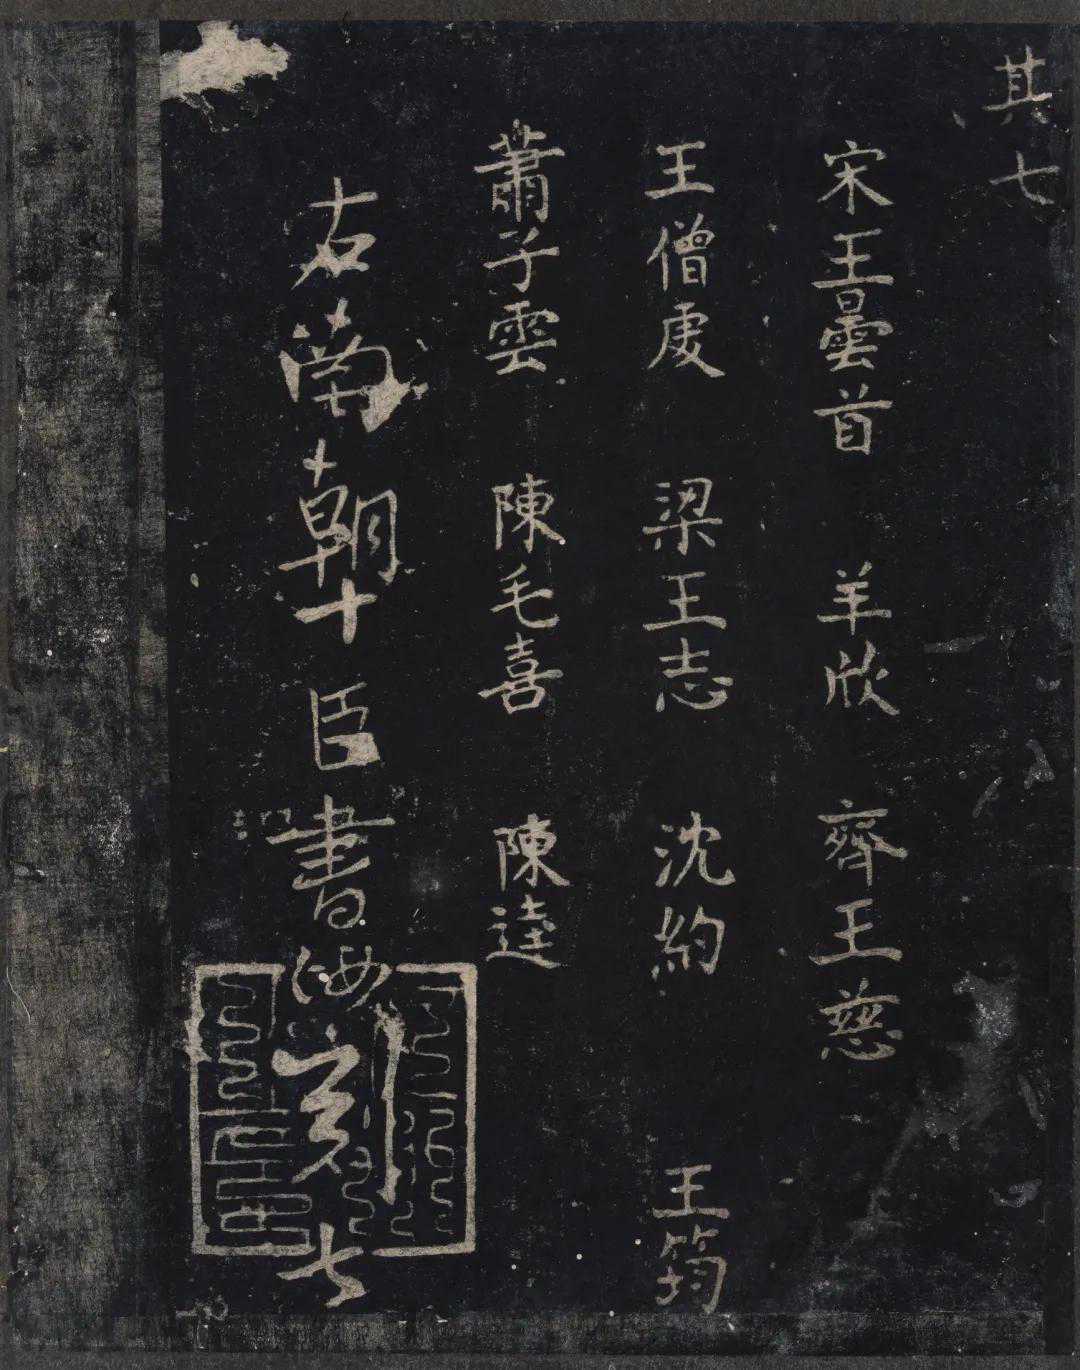 其七
宋王曇首 羊欣 齊王慈
王僧虔 梁王志 沈約 王筠
蕭子雲 陳毛喜 陳逵
右南朝十臣書汝刻七